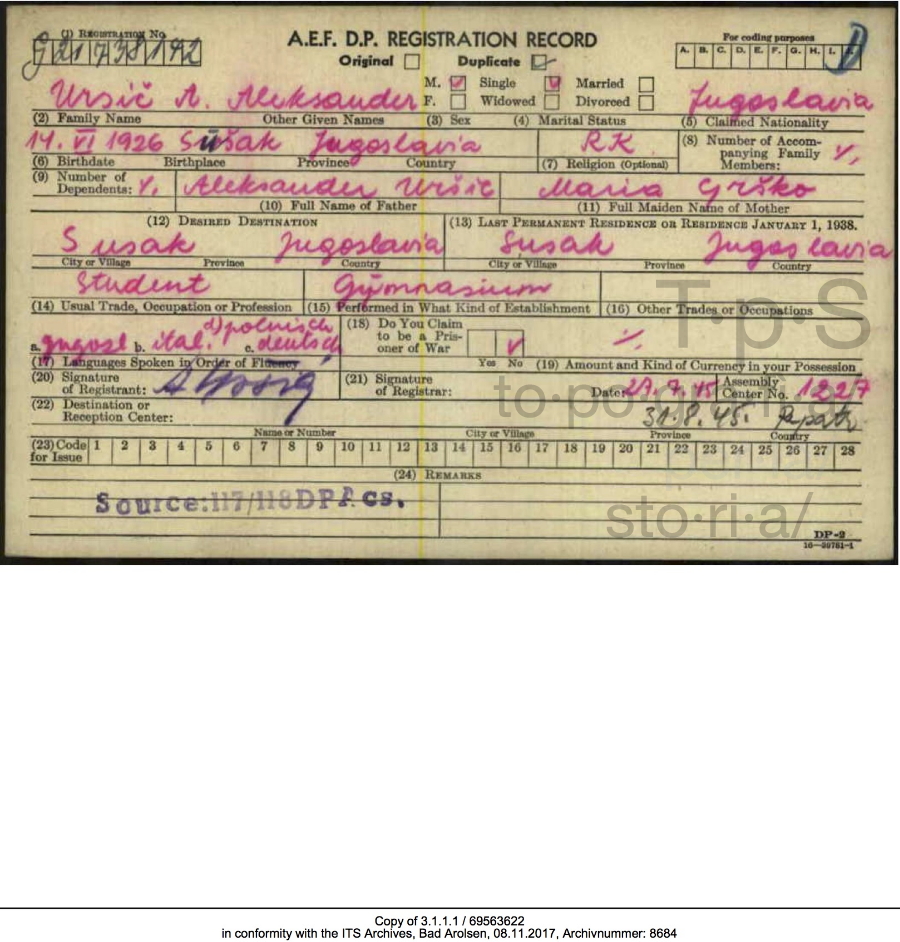 (1) REGISTRATION No
G21738192
A.E.F. D.P. REGISTRATION RECORD
Original Duplicate
For coding purposes
A. B. C. D. E. F. G. H. I.
M. Single Married
F. Widowed Divorced
Uršič A. Aleksander Jugoslavia
(2) Family Name Other Given Names (3) Sex (4) Marital Status (5) Claimed Nationality
14. VI 1926 Sušak Jugoslavia RK (8) Number of Accompanying Family Members:
(6) Birthdate Birthplace Province Country (7) Religion (Optional)
(9) Number of Dependents: Aleksander Uršič Maria Grško
(10) Full Name of Father (11) Full Maiden Name of Mother
(12) DESIRED DESTINATION (13) LAST PERMANENT RESIDENCE OR RESIDENCE JANUARY 1, 1938.
Susak Jugoslavia Susak Jugoslavia
City or Village Province Country City or Village Province Country
Student Gymnasium
(14) Usual Trade, Occupation or Profession (15) Performed in What Kind of Establishment (16) Other Trades or Occupations
a. jugosl b. ital. c. deutsch d) polnisch (18) Do You Claim to be a Prisoner of War
(17) Languages Spoken in Order of Fluency Yes No (19) Amount and Kind of Currency in your Possession
(20) Signature of Registrant: (21) Signature of Registrar: Date: 27.7.45 Assembly Center No. 1227
(22) Destination or Reception Center: 31.8.45.
Name or Number City or Village Province Country
(23) Code for Issue 1 2 3 4 5 6 7 8 9 10 11 12 13 14 15 16 17 18 19 20 21 22 23 24 25 26 27 28
(24) REMARKS
Source:117/118DPAcs.
T·p·S
sto·ri·a/
DP-2
16-39761-1
Copy of 3.1.1.1 / 69563622
in conformity with the ITS Archives, Bad Arolsen, 08.11.2017, Archivnummer: 8684